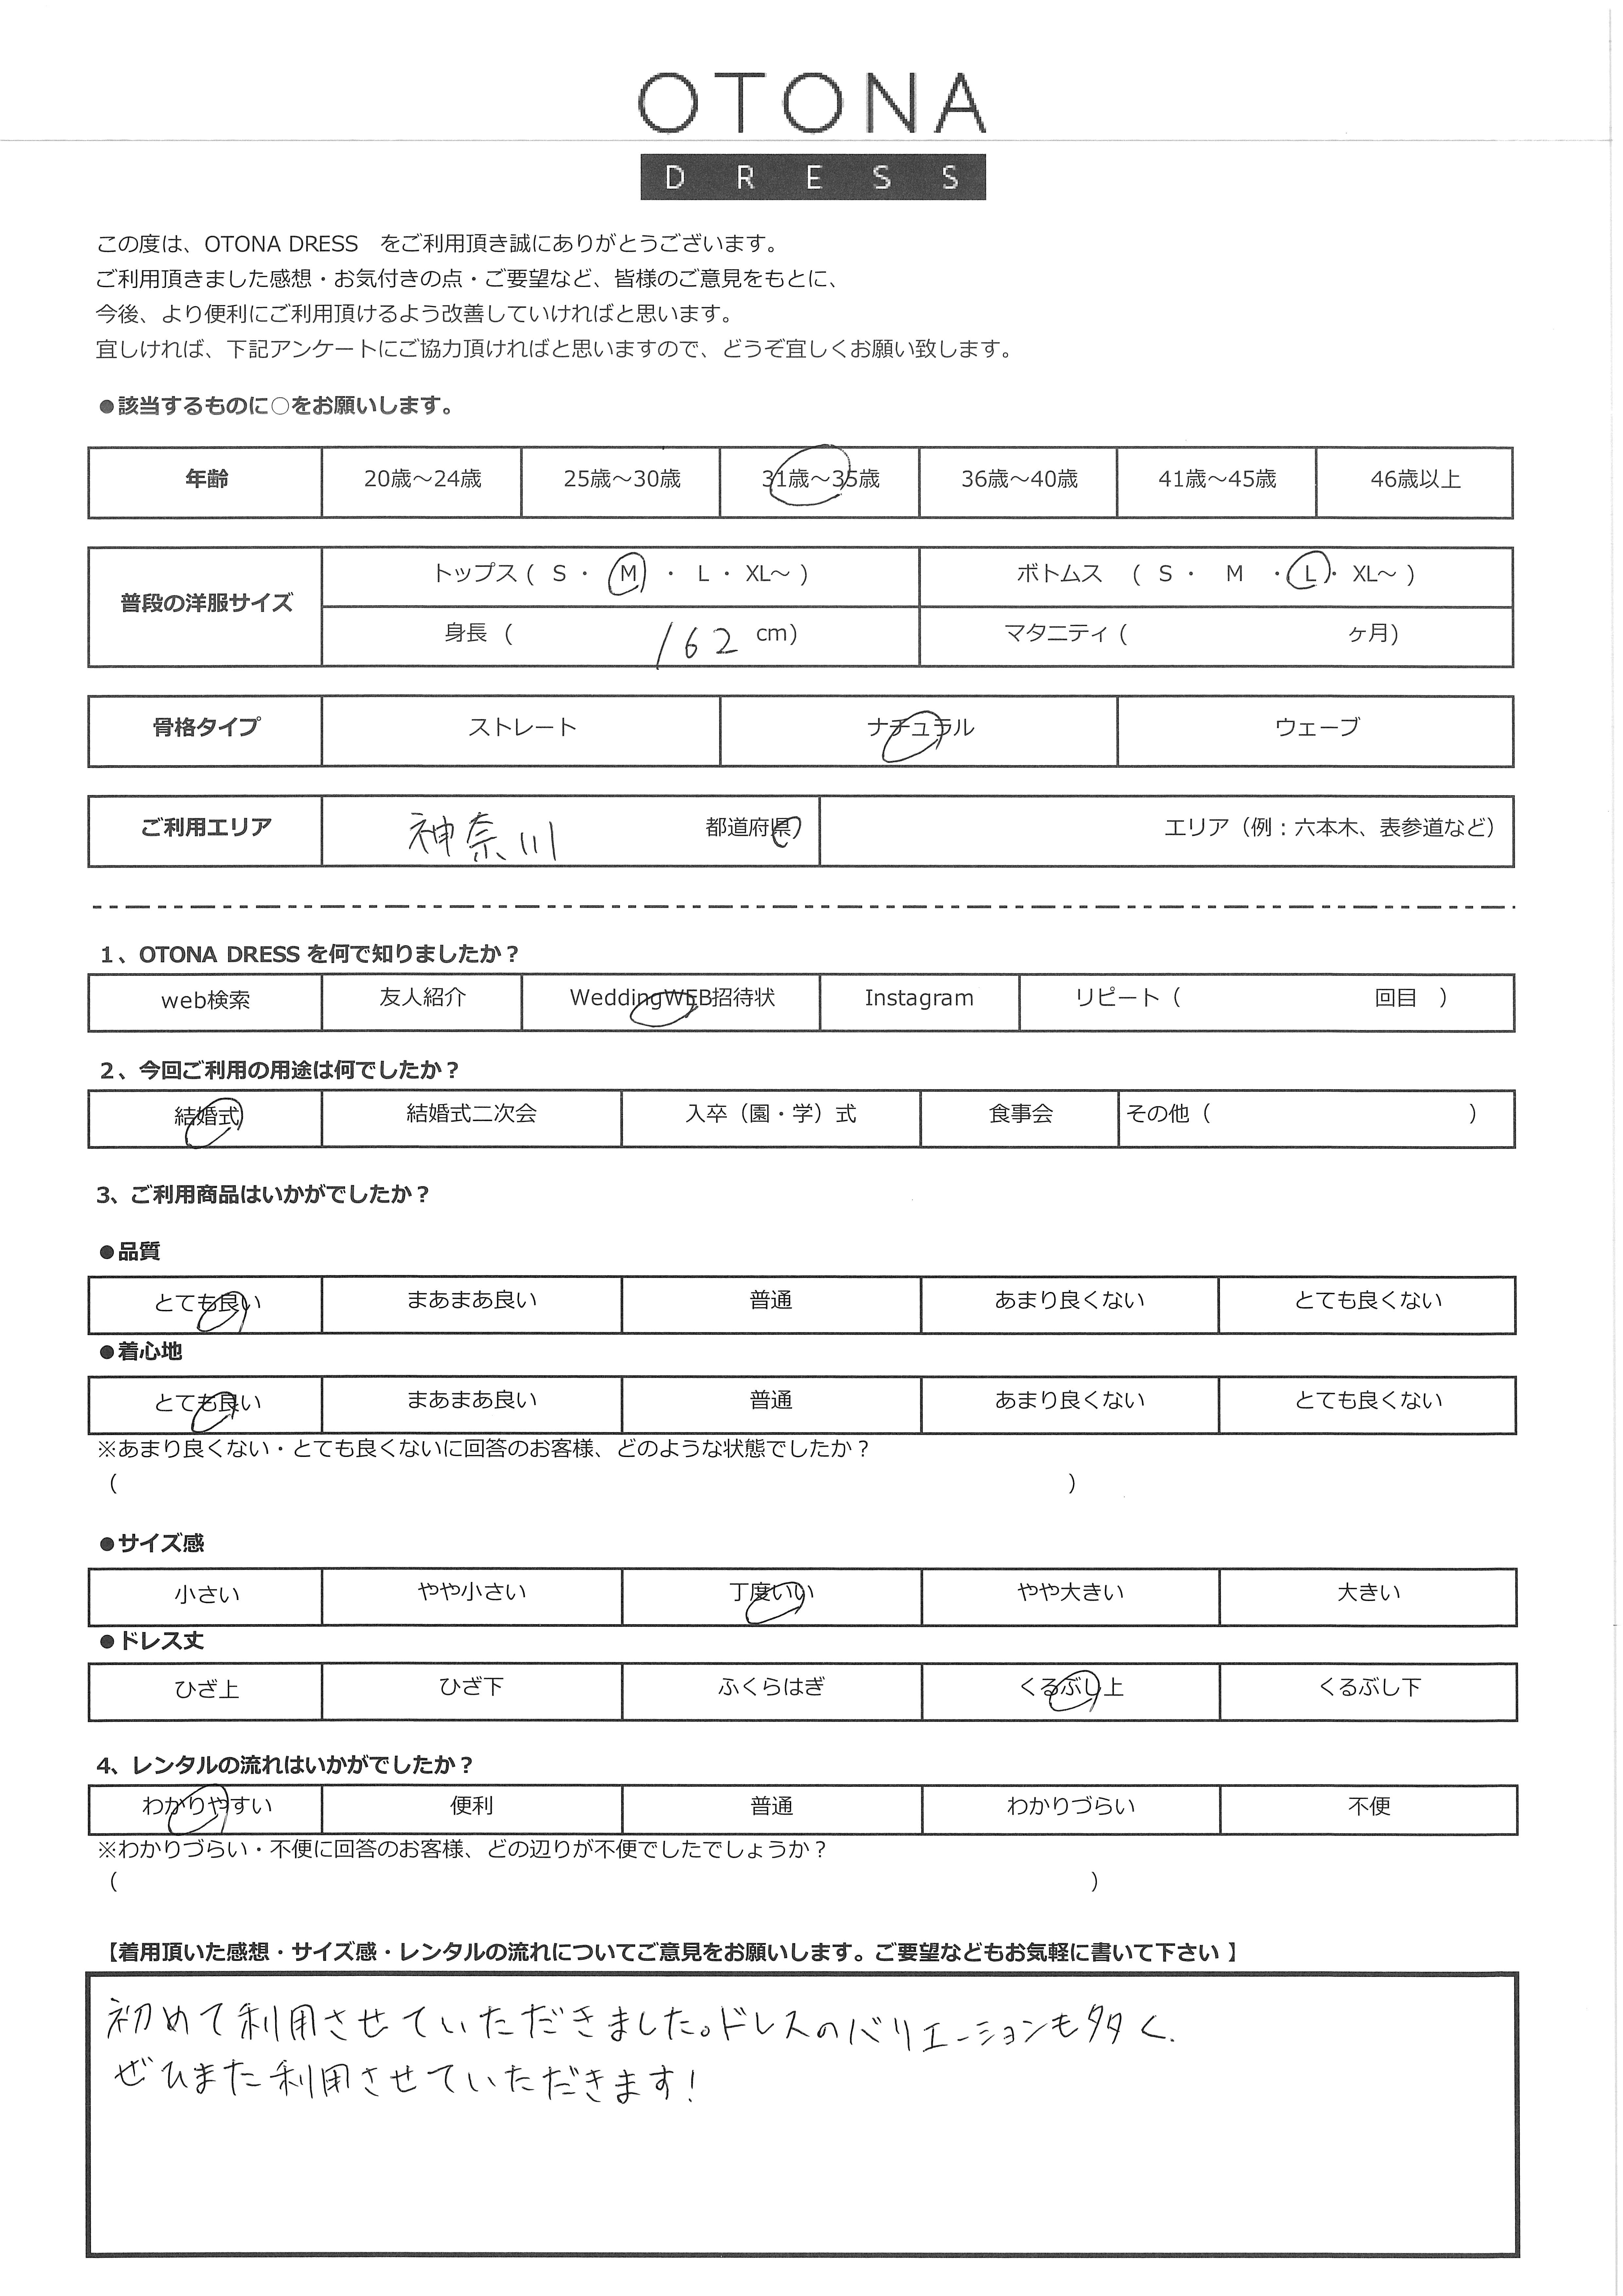 OTONA
DRESS
この度は、OTONA DRESS　をご利用頂き誠にありがとうございます。
ご利用頂きました感想・お気付きの点・ご要望など、皆様のご意見をもとに、
今後、より便利にご利用頂けるよう改善していければと思います。
宜しければ、下記アンケートにご協力頂ければと思いますので、どうぞ宜しくお願い致します。
●該当するものに○をお願いします。
年齢 20歳～24歳 25歳～30歳 31歳～35歳 36歳～40歳 41歳～45歳 46歳以上
普段の洋服サイズ トップス ( S ・ M ・ L ・ XL～ ) ボトムス ( S ・ M ・ L ・ XL～ )
身長 ( 162 cm) マタニティ ( ヶ月)
骨格タイプ ストレート ナチュラル ウェーブ
ご利用エリア 神奈川 都道府県 エリア（例：六本木、表参道など）
1、OTONA DRESS を何で知りましたか？
web検索 友人紹介 WeddingWEB招待状 Instagram リピート（ 回目 ）
2、今回ご利用の用途は何でしたか？
結婚式 結婚式二次会 入卒（園・学）式 食事会 その他（ ）
3、ご利用商品はいかがでしたか？
●品質
とても良い まあまあ良い 普通 あまり良くない とても良くない
●着心地
とても良い まあまあ良い 普通 あまり良くない とても良くない
※あまり良くない・とても良くないに回答のお客様、どのような状態でしたか？
（ ）
●サイズ感
小さい やや小さい 丁度いい やや大きい 大きい
●ドレス丈
ひざ上 ひざ下 ふくらはぎ くるぶし上 くるぶし下
4、レンタルの流れはいかがでしたか？
わかりやすい 便利 普通 わかりづらい 不便
※わかりづらい・不便に回答のお客様、どの辺りが不便でしたでしょうか？
（ ）
【着用頂いた感想・サイズ感・レンタルの流れについてご意見をお願いします。ご要望などもお気軽に書いて下さい 】
初めて利用させていただきました。ドレスのバリエーションも多く、
ぜひまた利用させていただきます！